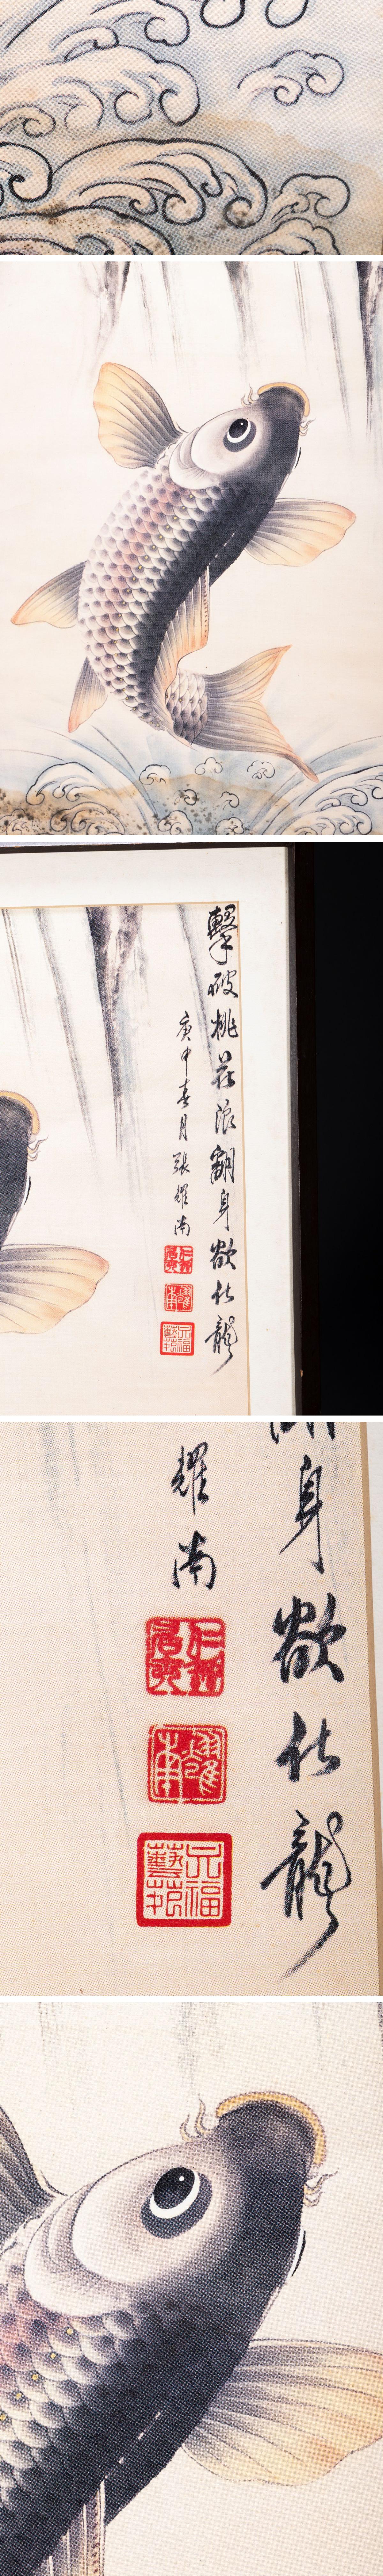 擊破桃花浪翻身欲化龍
庚申春月張耀南
耀南
身欲化龍
耀南
耀南